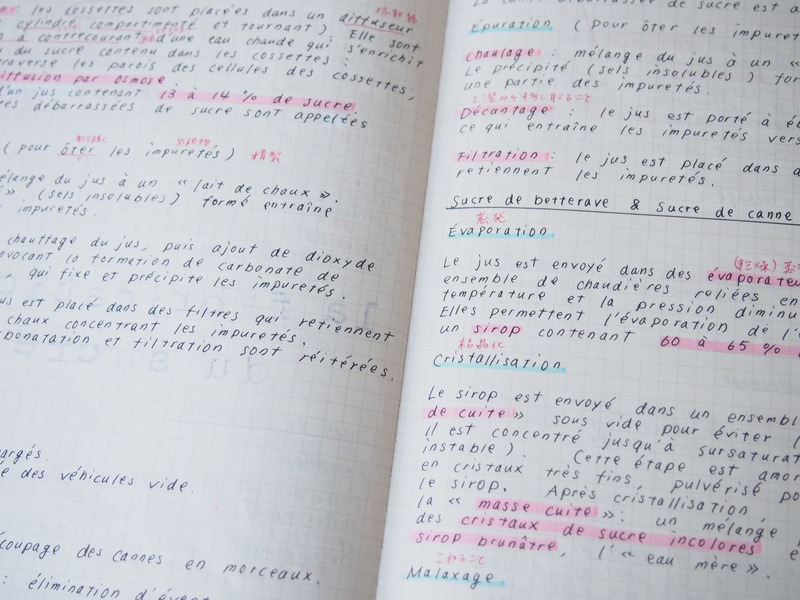 : les cossettes sont placées dans un diffuseur
cylindre compartimenté et tournant). Elle sont
à contrecourant d'une eau chaude qui s'enrichit
du sucre contenu dans les cossettes :
traverse les parois des cellules des cossettes,
diffusion par osmose.
d'un jus contenant 13 à 14 % de sucre
débarrassées de sucre sont appelées
(pour ôter les impuretés) 精製
mélange du jus à un « lait de chaux ».
». (sels insolubles) formé entraîne
impuretés.
chauffage du jus, puis ajout de dioxyde
provocant la formation de carbonate de
, qui fixe et précipite les impuretés.
est placé dans des filtres qui retiennent
chaux concentrant les impuretés.
carbonatation et filtration sont réitérées.
des véhicules vide.
découpage des cannes en morceaux.
: élimination d'
débarrassée de sucre est a
Épuration (pour ôter les impuret
Chaulage : mélange du jus à un «
Le précipité (sels insolubles) for
une partie des impuretés.
Décantage : le jus est porté à éb
ce qui entraîne les impuretés vers
Filtration : le jus est placé dans d
retiennent les impuretés.
Sucre de betterave & Sucre de canne
蒸発
Évaporation
(乾燥) 蒸
Le jus est envoyé dans des évaporateu
ensemble de chaudières reliées en
température et la pression diminu
Elles permettent l'évaporation de l'
un sirop contenant 60 à 65 %
結晶化
Cristallisation
Le sirop est envoyé dans un ensembl
de cuite » sous vide pour éviter
il est concentré jusqu'à sursaturat
instable). Cette étape est amor
en cristaux très fins pulvérisé
le sirop. Après cristallisation,
la « masse cuite » : un mélange
des cristaux de sucre incolores
sirop brunâtre, l'« eau mère ».
こねること
Malaxage